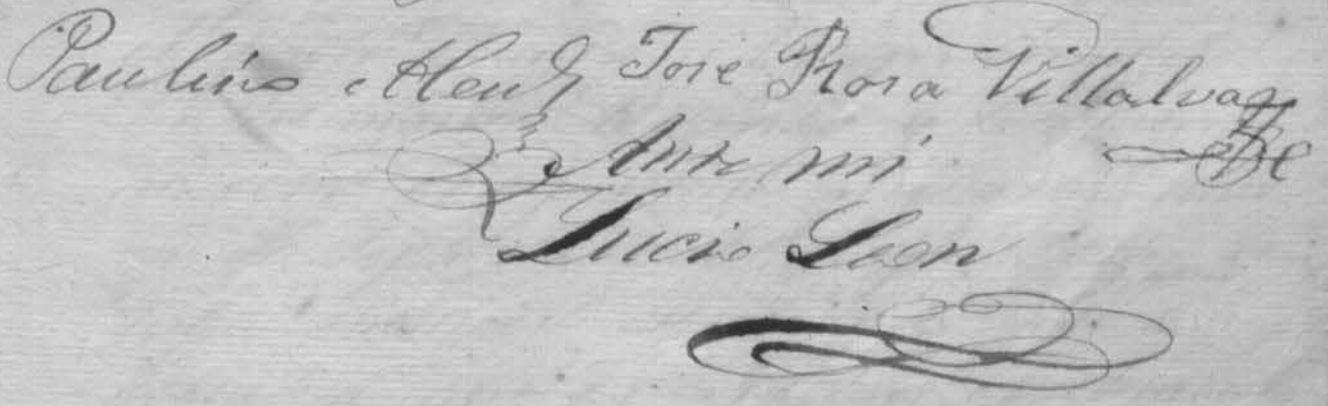 Paulino José Rosa Villalva
Ante mi
Lucio Leon